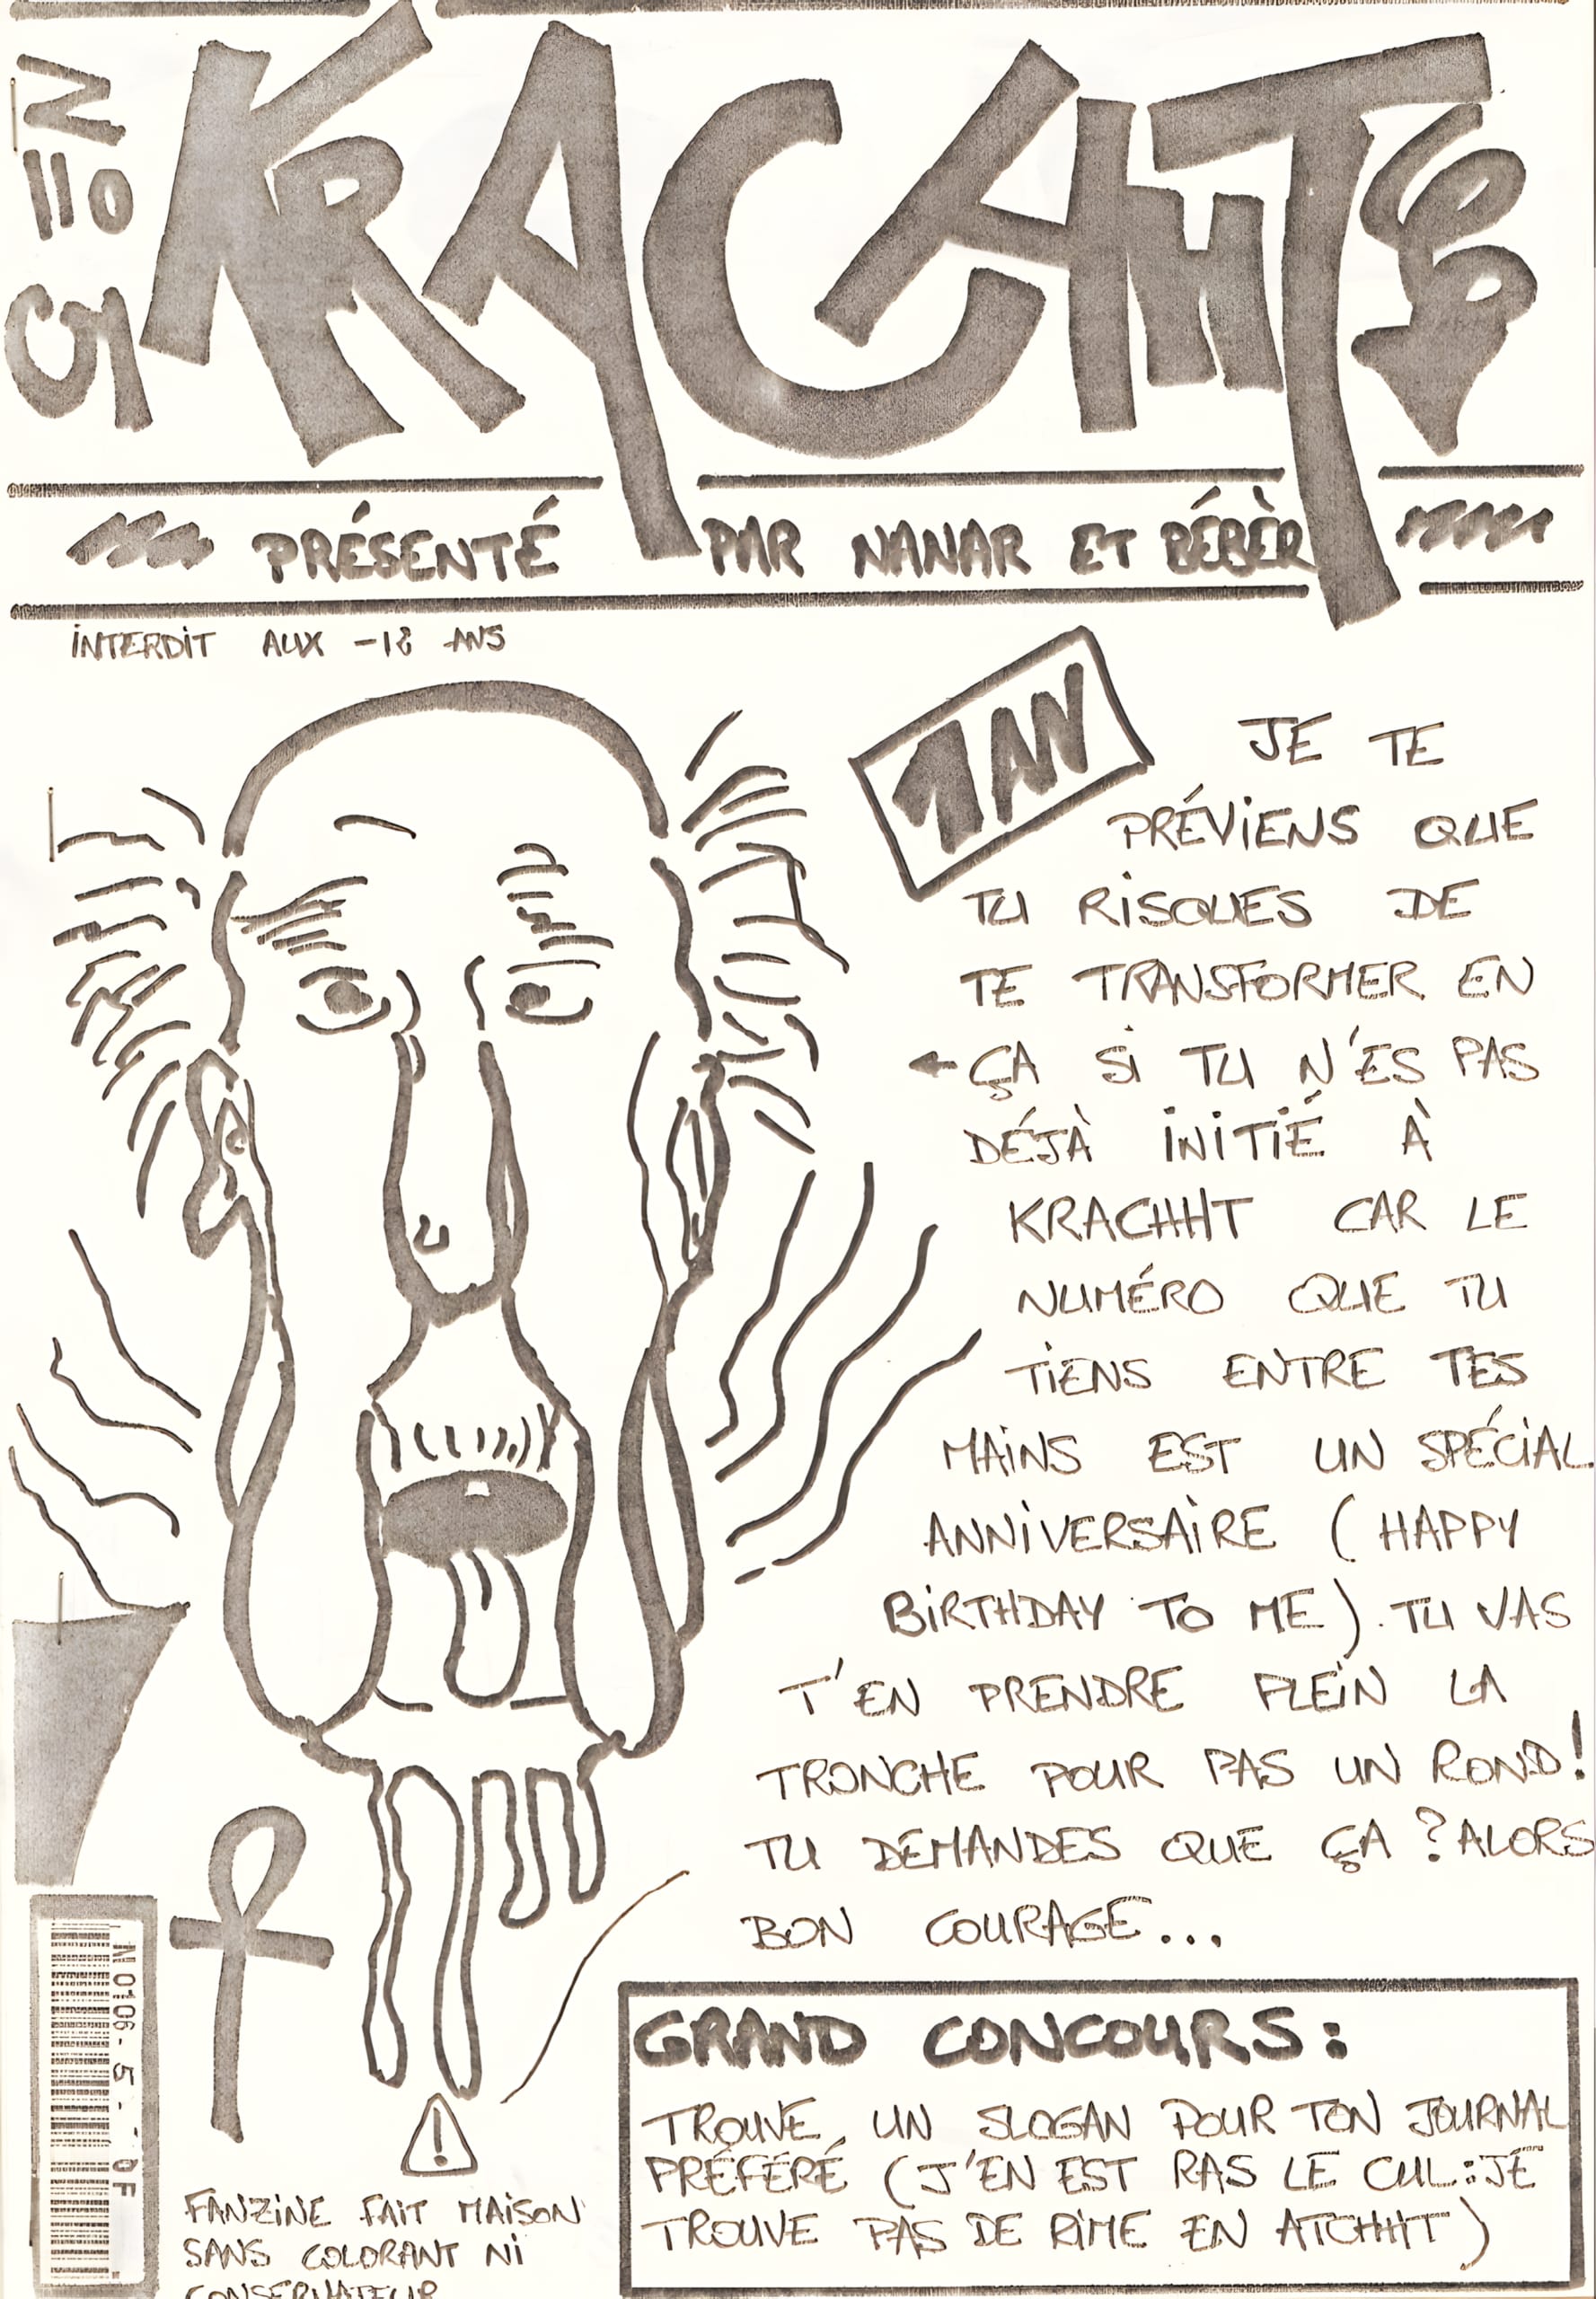 N° 5
KRACHHT
PRÉSENTÉ PAR NANAR ET BÉBÈR
INTERDIT AUX -18 ANS
1 AN
JE TE
PRÉVIENS QUE
TU RISQUES DE
TE TRANSFORMER EN
← ÇA SI TU N'ES PAS
DÉJÀ INITIÉ À
KRACHHT CAR LE
NUMÉRO QUE TU
TIENS ENTRE TES
MAINS EST UN SPÉCIAL
ANNIVERSAIRE (HAPPY
BIRTHDAY TO ME). TU VAS
T'EN PRENDRE PLEIN LA
TRONCHE POUR PAS UN ROND!
TU DEMANDES QUE ÇA ? ALORS
BON COURAGE...
GRAND CONCOURS:
TROUVE UN SLOGAN POUR TON JOURNAL
PRÉFÉRÉ (J'EN EST RAS LE CUL: JE
TROUVE PAS DE RIME EN ATCHHHT)
!
FANZINE FAIT MAISON
SANS COLORANT NI
CONSERVATEUR